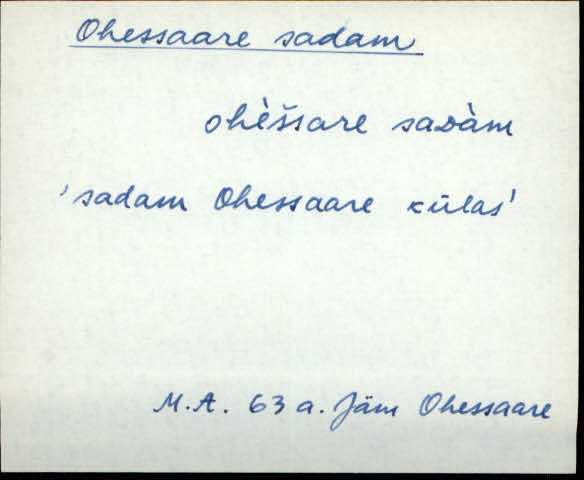 Ohessaare sadam
ohè̀šsare saᴅàm
'sadam Ohessaare külas'
M.A. 63 a. Jäm Ohessaare